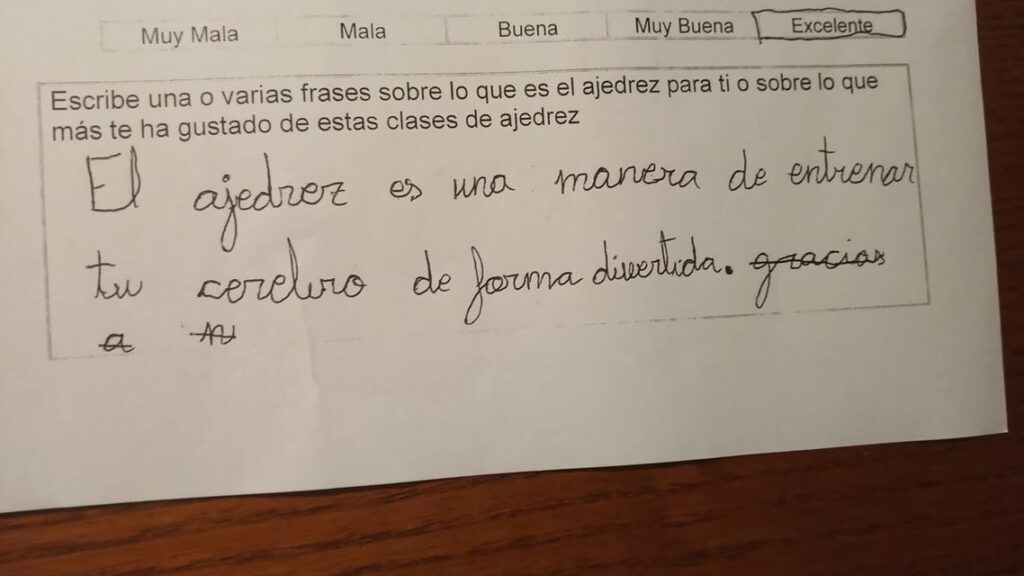 Muy Mala Mala Buena Muy Buena Excelente
Escribe una o varias frases sobre lo que es el ajedrez para ti o sobre lo que
más te ha gustado de estas clases de ajedrez
El ajedrez es una manera de entrenar
tu cerebro de forma divertida. gracias
a